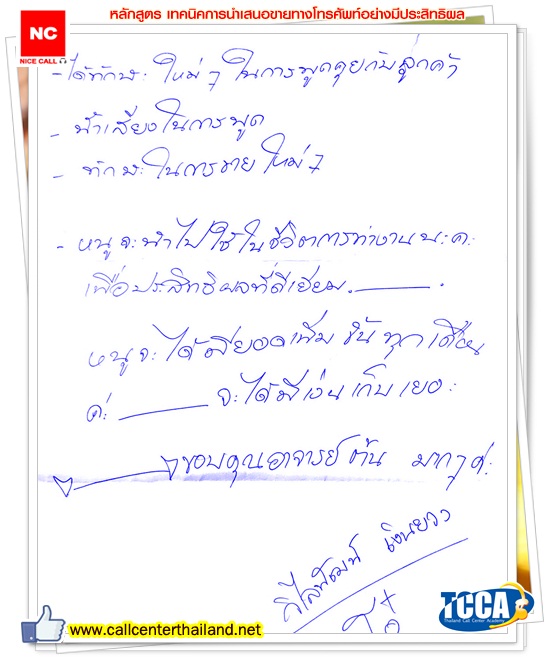 หลักสูตร เทคนิคการนำเสนอขายทางโทรศัพท์อย่างมีประสิทธิผล
NC
NICE CALL
- ได้ทักษะ ใหม่ๆ ในการพูดคุยกับลูกค้า
- น้ำเสียงในการพูด
- ทักษะในการขายใหม่ๆ
- หนูจะนำไปใช้ในชีวิตการทำงานนะคะ
เพื่อประสิทธิผลที่ดีเยี่ยม.
หนูจะได้มียอดเพิ่มขึ้นทุกเดือน
ค่ะ จะได้มีเงินเก็บเยอะ
ขอบคุณอาจารย์ต้น มากๆค่ะ
TCCA
Thailand Call Center Academy
www.callcenterthailand.net